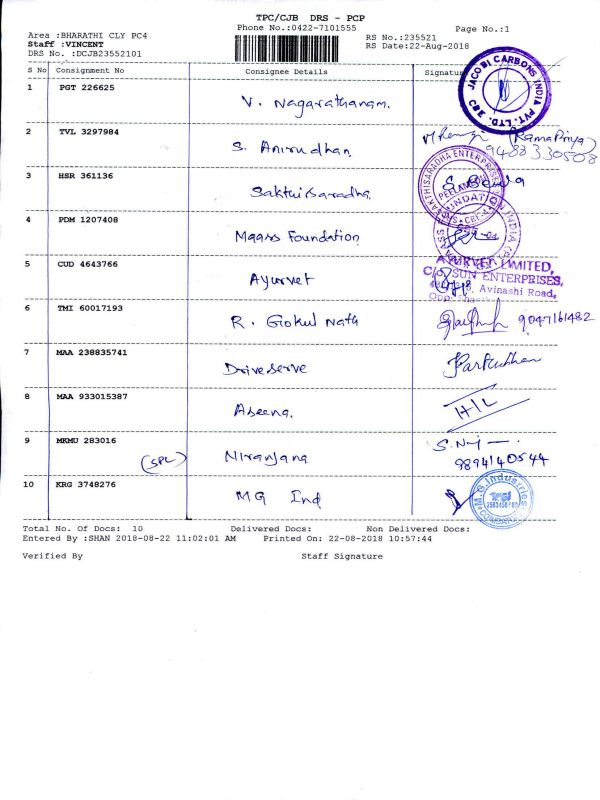 TPC/CJB DRS - PCP
Phone No.:0422-7101555 Page No.:1
Area :BHARATHI CLY PC4
Staff :VINCENT RS No.:235521
DRS No. :DCJB23552101 RS Date:22-Aug-2018
S No Consignment No Consignee Details Signature
1 PGT 226625 V. Nagarathanam. JACOBI CARBONS INDIA PVT. LTD.
2 TVL 3297984 S. Anirudhan (RamaPriya)
9488330508
3 HSR 361136 Sakthisaradha SAKTHISARADHA ENTERPRISES
4 PDM 1207408 Maars Foundation
5 CUD 4643766 Ayurvet AYURVET LIMITED,
C/o SUN ENTERPRISES,
Avinashi Road,
6 TMI 60017193 R. Gokul Nath 9047161482
7 MAA 238835741 Driveserve
8 MAA 933015387 Abeena. H/L
9 MKMU 283016 (SPL) Niranjana
9894140544
10 KRG 3748276 MG Ind M.G.Industries
Total No. Of Docs: 10 Delivered Docs: Non Delivered Docs:
Entered By :SHAN 2018-08-22 11:02:01 AM Printed On: 22-08-2018 10:57:44
Verified By Staff Signature